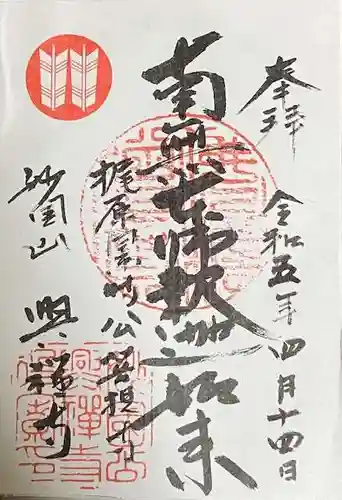 奉拝
令和五年四月十四日
南無本師釈迦如来
梶原景時公菩提寺
妙国山
興禅寺